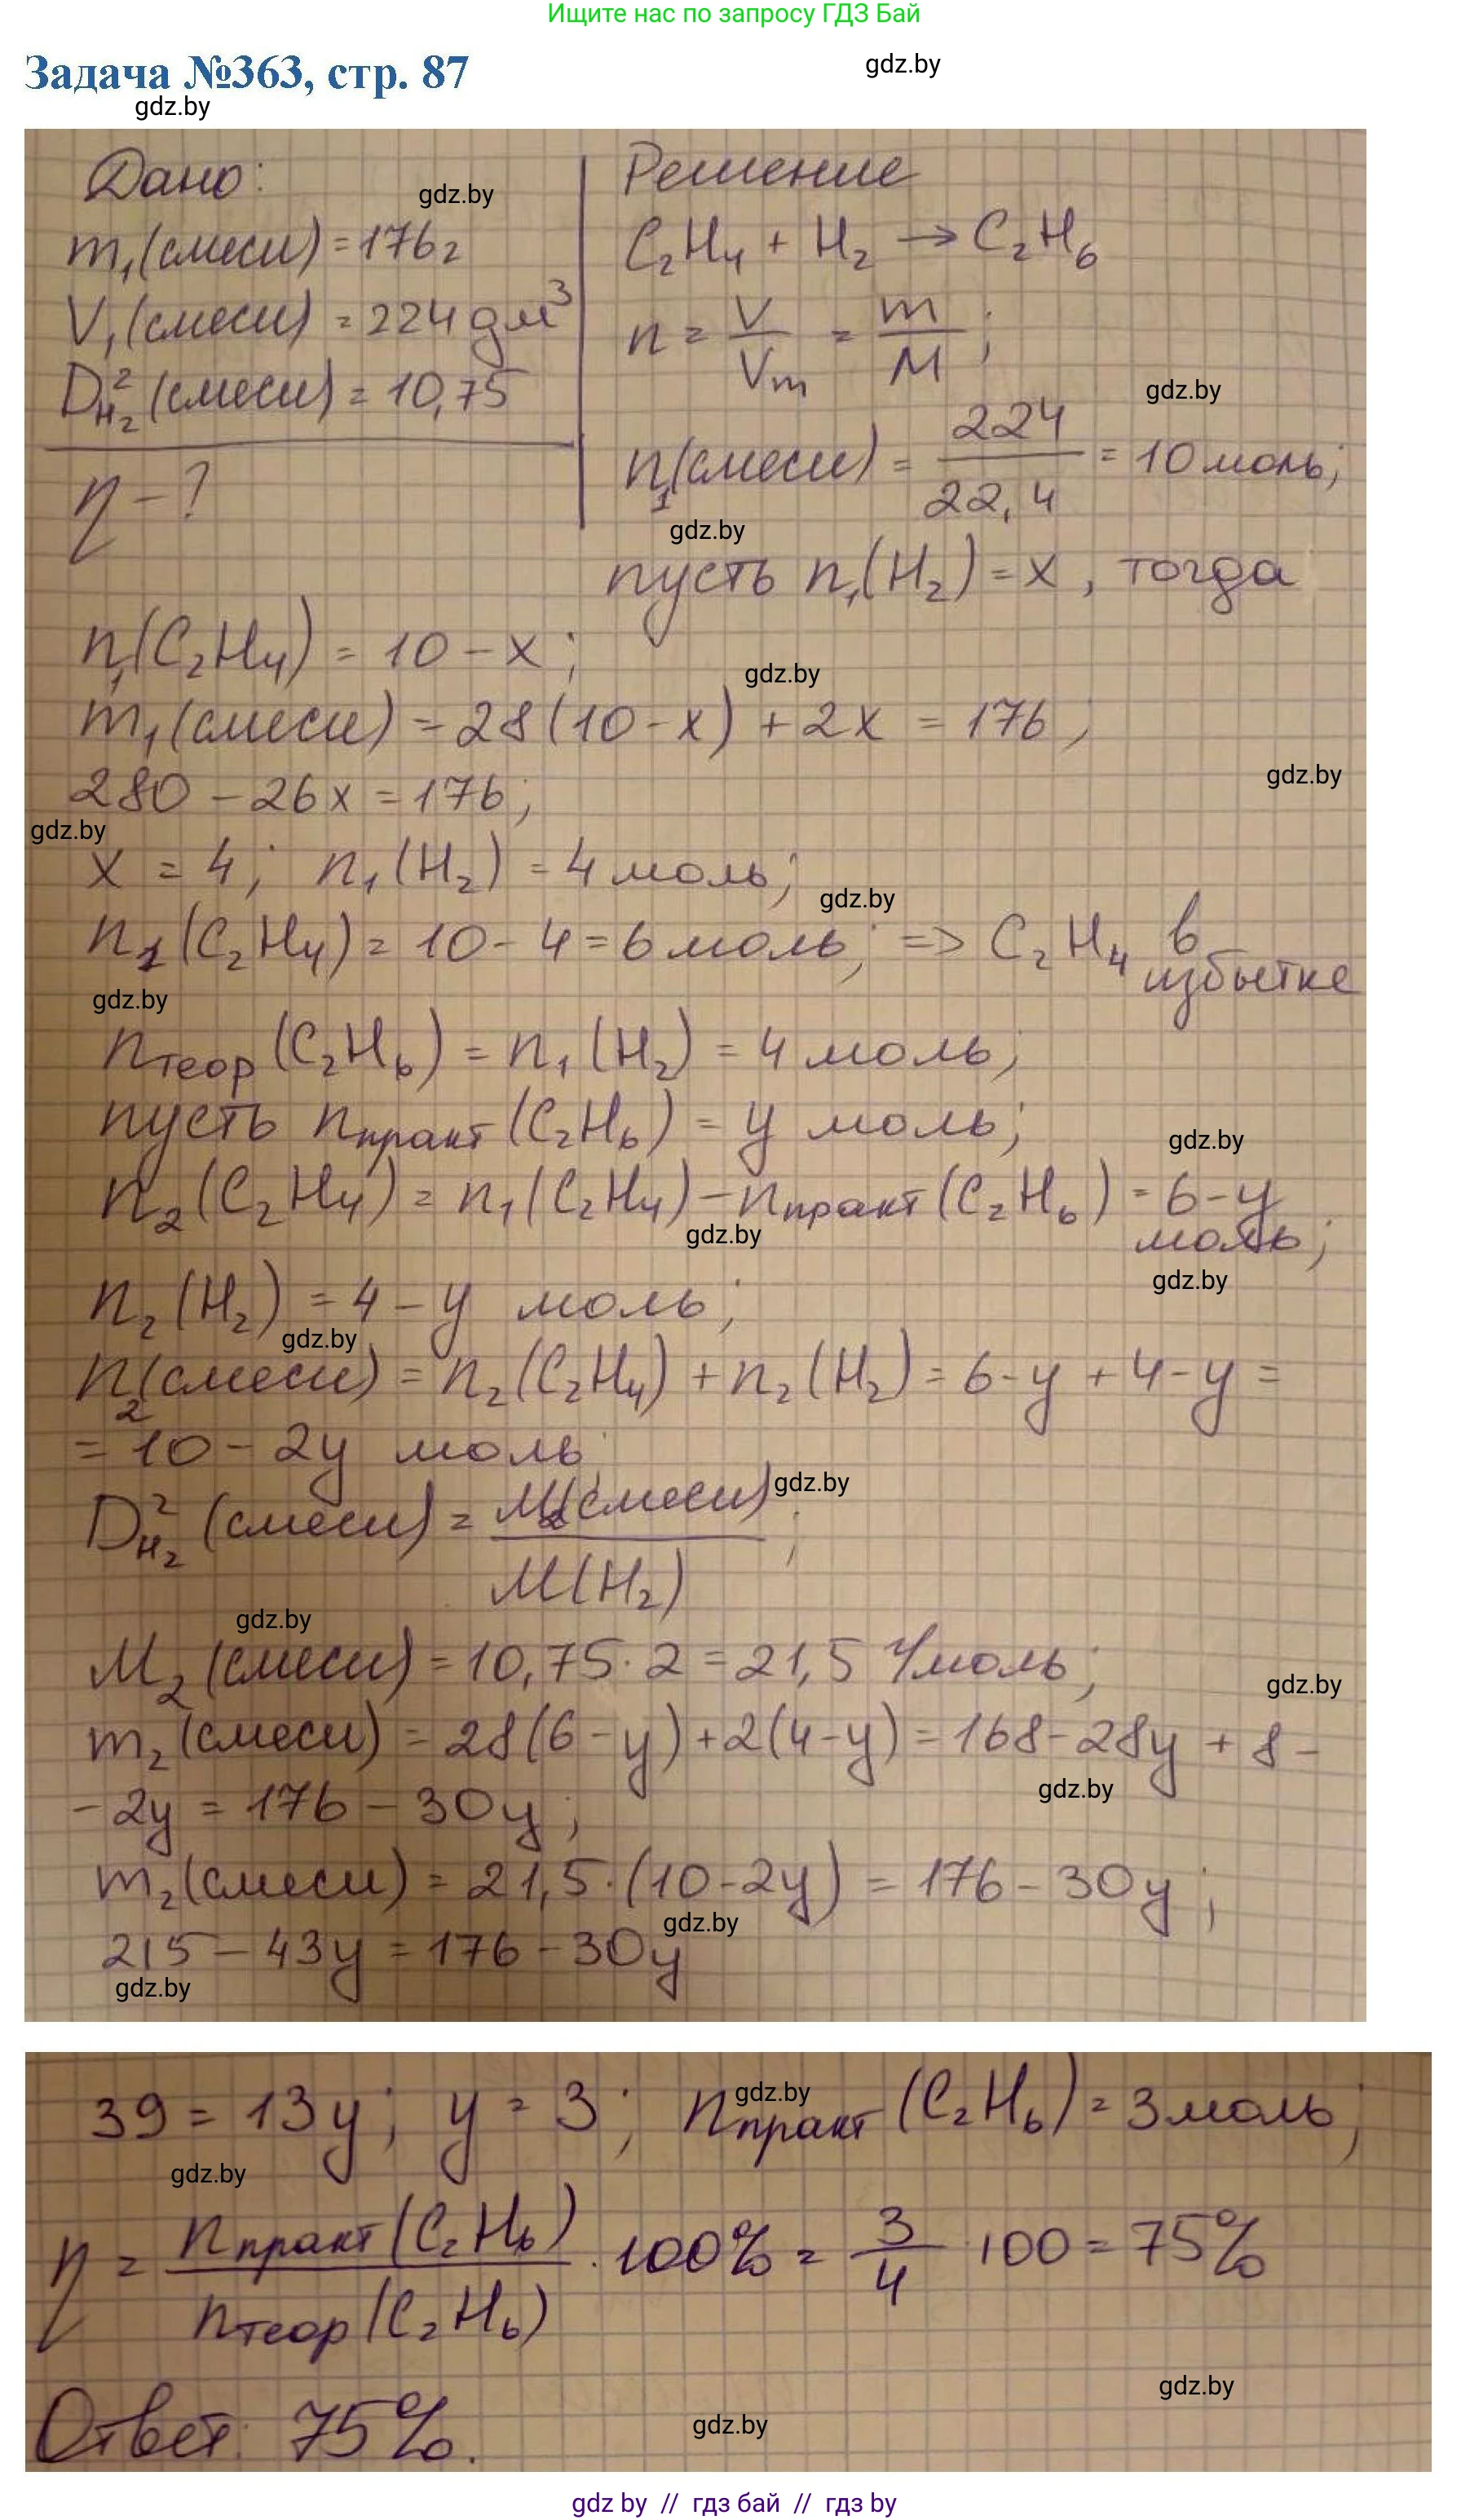 Ищите нас по запросу ГДЗ Бай
Задача №363, стр. 87
gdz.by
gdz.by
Дано:
gdz.by
m₁(смеси) = 176 г
V₁(смеси) = 224 дм³
D²H₂(смеси) = 10,75
η - ?
Решение
C₂H₄ + H₂ → C₂H₆
n = V/Vm = m/M ;
gdz.by
n₁(смеси) = 224/22,4 = 10 моль;
gdz.by
пусть n₁(H₂) = x , тогда
n₁(C₂H₄) = 10 - x ;
gdz.by
m₁(смеси) = 28(10 - x) + 2x = 176 ;
280 - 26x = 176 ;
gdz.by
gdz.by
x = 4 ; n₁(H₂) = 4 моль;
gdz.by
n₁(C₂H₄) = 10 - 4 = 6 моль; => C₂H₄ в избытке
gdz.by
nтеор(C₂H₆) = n₁(H₂) = 4 моль;
пусть nпракт(C₂H₆) = y моль;
gdz.by
n₂(C₂H₄) = n₁(C₂H₄) - nпракт(C₂H₆) = 6 - y моль;
gdz.by
gdz.by
n₂(H₂) = 4 - y моль;
gdz.by
n₂(смеси) = n₂(C₂H₄) + n₂(H₂) = 6 - y + 4 - y =
= 10 - 2y моль;
gdz.by
D²H₂(смеси) = M₂(смеси)/M(H₂) ;
gdz.by
M₂(смеси) = 10,75 · 2 = 21,5 г/моль;
gdz.by
m₂(смеси) = 28(6 - y) + 2(4 - y) = 168 - 28y + 8 -
gdz.by
- 2y = 176 - 30y ;
m₂(смеси) = 21,5 · (10 - 2y) = 176 - 30y ;
gdz.by
215 - 43y = 176 - 30y
gdz.by
gdz.by
39 = 13y ; y = 3 ; nпракт(C₂H₆) = 3 моль;
gdz.by
η = nпракт(C₂H₆)/nтеор(C₂H₆) · 100% = 3/4 · 100 = 75%
gdz.by
Ответ: 75%.
gdz.by
gdz by // гдз бай // гдз by